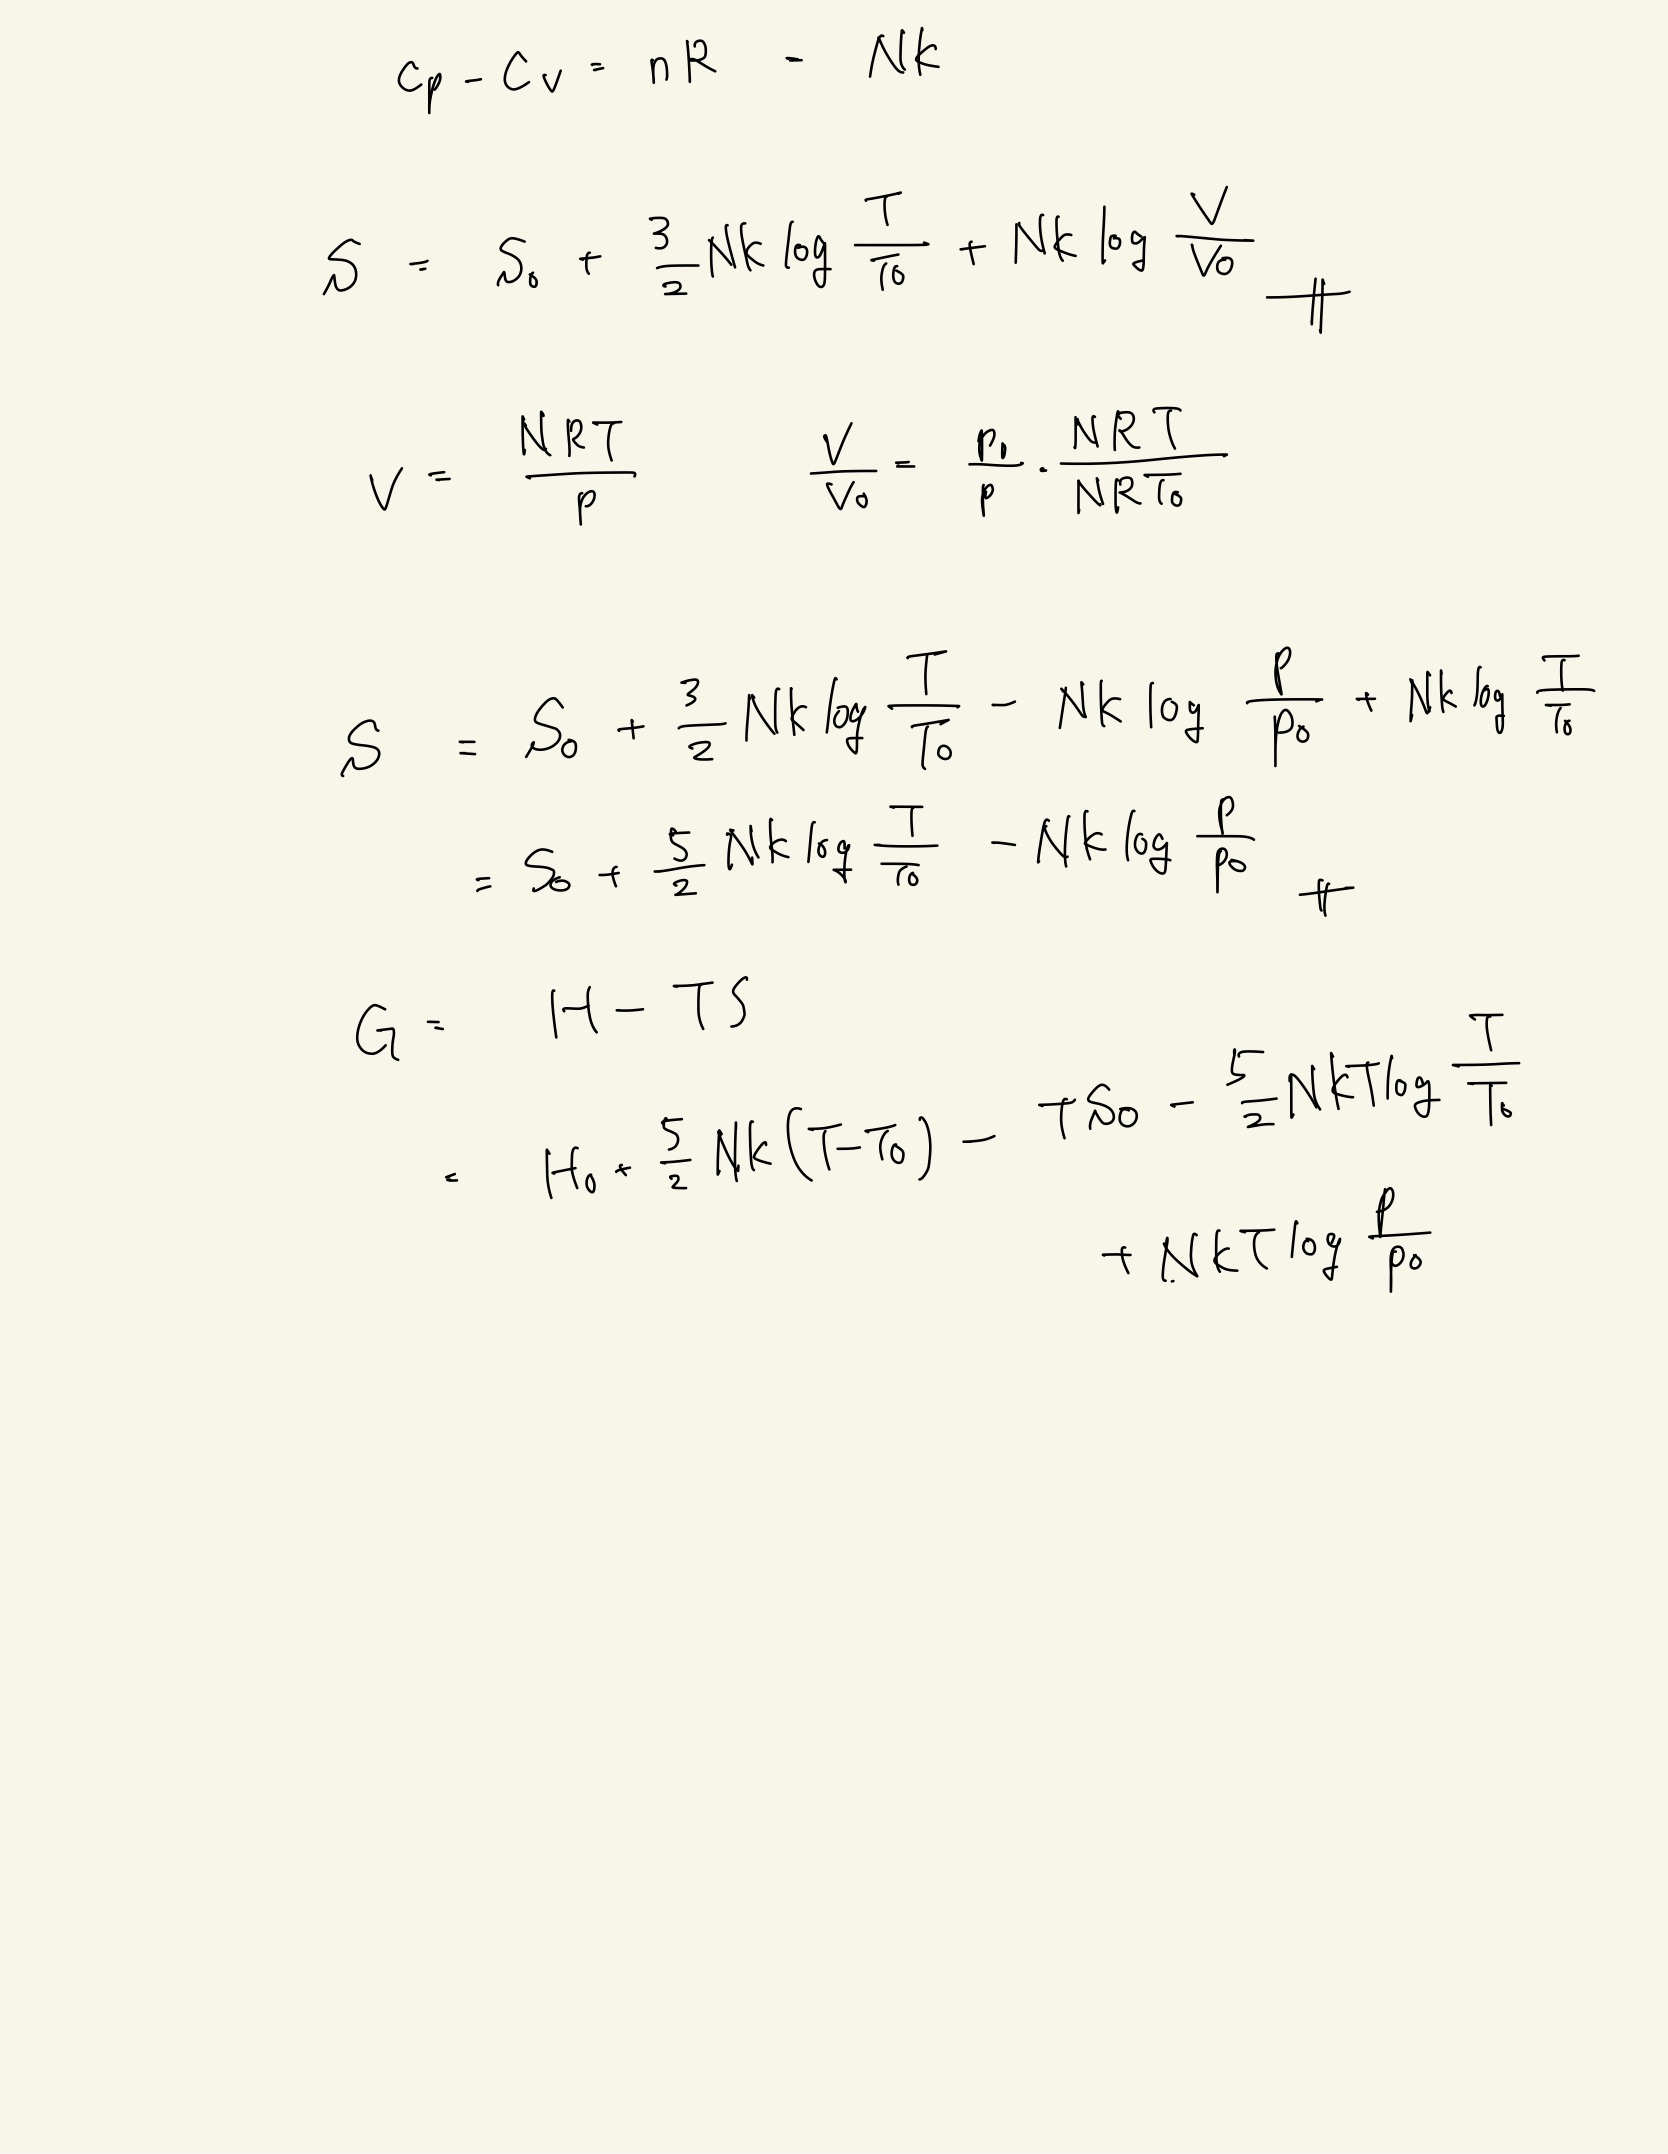 Cp - Cv = nR - Nk
S = S₀ + 3/2 Nk log T/T₀ + Nk log V/V₀
V = NRT/P   V/V₀ = P₀/P · NRT/NRT₀
S = S₀ + 3/2 Nk log T/T₀ - Nk log P/P₀ + Nk log T/T₀
= S₀ + 5/2 Nk log T/T₀ - Nk log P/P₀
G = H - TS
= H₀ + 5/2 Nk (T-T₀) - TS₀ - 5/2 NkT log T/T₀
+ NkT log P/P₀